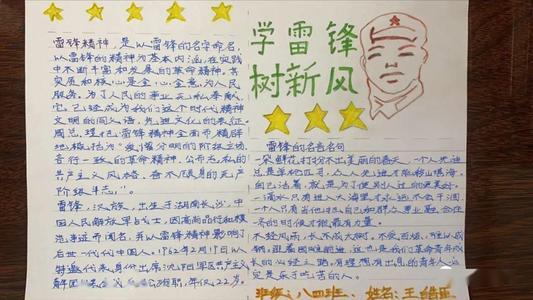 雷锋精神,是以雷锋的名字命名,
以雷锋的精神为基本内涵,在实践
中不断丰富和发展的革命精神,其
实质和核心是全心全意为人民
服务,为了人民的事业无私奉献。
它已经成为我们这个时代精神
文明的同义语,先进文化的表征。
周总理把雷锋精神全面而精辟
地概括为"爱憎分明的阶级立场,
言行一致的革命精神,公而忘私的
共产主义风格,奋不顾身的无产
阶级斗志。"
雷锋,汉族,出生于湖南长沙,中
国人民解放军战士,因高尚品行和模
范事迹而闻名,并以雷锋精神影响了
后世一代代中国人。1962年2月19日以
特邀代表身份出席沈阳军区共产主义
年仅22岁
学雷锋
树新风
雷锋的名言名句
一朵鲜花打扮不出美丽的春天,一个人先进
总是单枪匹马,众人先进才能移山填海。
自己活着,就是为了使别人过的更美好。
一滴水只有进入大海里才永远不会干涸
一个人只有当他把自己和集体事业融合在一
起的时候才能最有力量。
不经风雨,长不成大树,不受百炼,难以成
钢。迎着困难前进,这也是我们革命青年成
长的必经之路。有理想有出息的青年人必
定是乐于吃苦的人。
班级:八四班 姓名:王